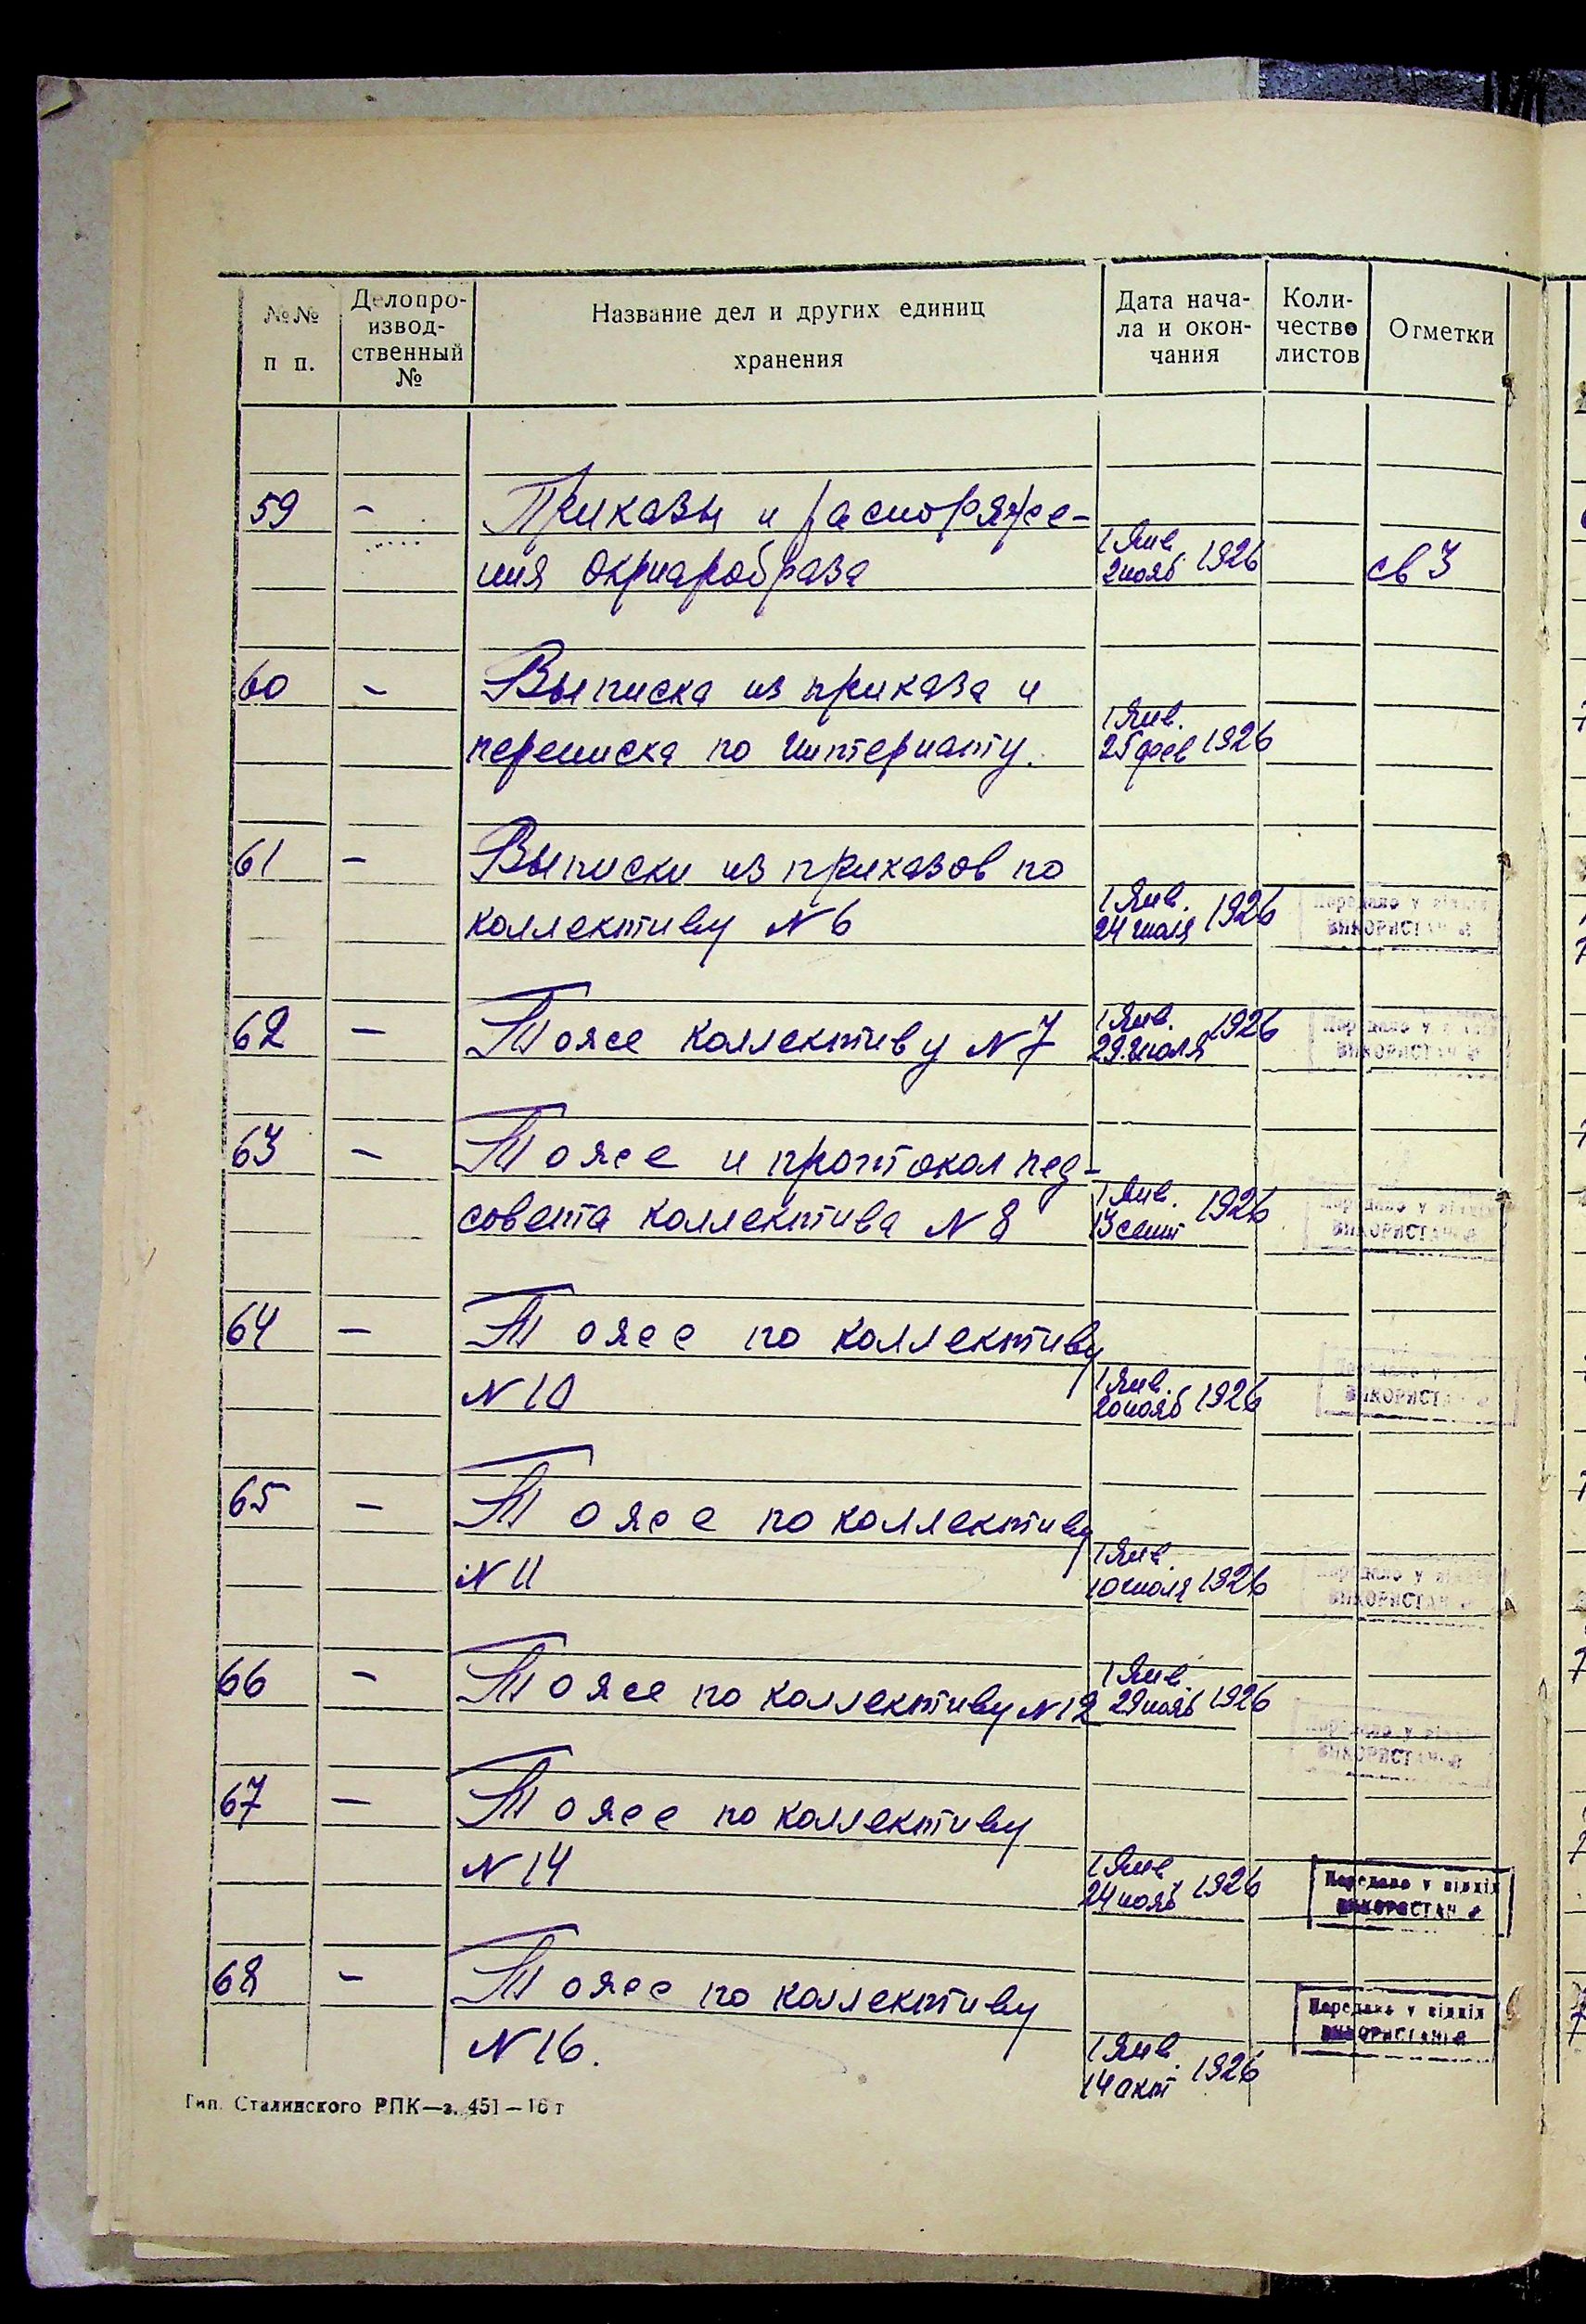 №№ п п.
Делопро-
извод-
ственный
№
Название дел и других единиц
хранения
Дата нача-
ла и окон-
чания
Коли-
чество
листов
Отметки
59 – Приказы и распоряже-
ния Окрнаробраза 1 Янв. 2 нояб 1926 св 3
60 – Выписка из приказа и
переписка по Интернату. 1 Янв. 25 фев 1926
61 – Выписки из приказов по
коллективу N 6 1 Янв. 24 июля 1926 Передано у відділ
ВИКОРИСТАННЯ
62 – Тоже коллективу N 7 1 Янв. 29 июля 1926 Передано у відділ
ВИКОРИСТАННЯ
63 – Тоже и протокол пед-
совета коллектива N 8 1 Янв. 13 сент 1926 Передано у відділ
ВИКОРИСТАННЯ
64 – Тоже по коллективу
N 10 1 Янв. 20 нояб 1926 Передано у відділ
ВИКОРИСТАННЯ
65 – Тоже по коллективу
N 11 1 Янв. 10 июля 1926 Передано у відділ
ВИКОРИСТАННЯ
66 – Тоже по коллективу N 12 1 Янв. 29 нояб 1926 Передано у відділ
ВИКОРИСТАННЯ
67 – Тоже по коллективу
N 14 1 Янв. 24 нояб 1926 Передано у відділ
ВИКОРИСТАННЯ
68 – Тоже по коллективу
N 16. 1 Янв. 14 окт 1926 Передано у відділ
ВИКОРИСТАННЯ
Тип. Сталинского РПК—з. 451—16 т